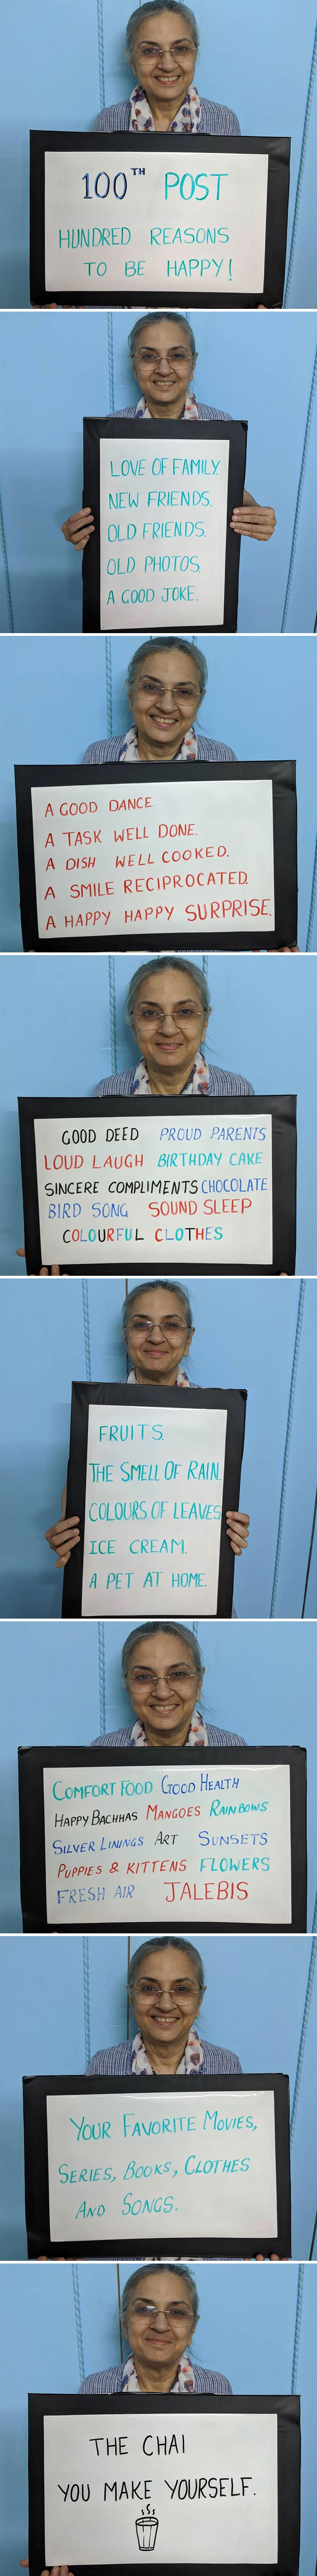 100TH POST
HUNDRED REASONS
TO BE HAPPY!
LOVE OF FAMILY.
NEW FRIENDS.
OLD FRIENDS.
OLD PHOTOS.
A GOOD JOKE.
A GOOD DANCE
A TASK WELL DONE.
A DISH WELL COOKED.
A SMILE RECIPROCATED.
A HAPPY HAPPY SURPRISE.
GOOD DEED PROUD PARENTS
LOUD LAUGH BIRTHDAY CAKE
SINCERE COMPLIMENTS CHOCOLATE
BIRD SONG SOUND SLEEP
COLOURFUL CLOTHES
FRUITS.
THE SMELL OF RAIN.
COLOURS OF LEAVES
ICE CREAM.
A PET AT HOME.
COMFORT FOOD GOOD HEALTH
HAPPY BACHHAS MANGOES RAINBOWS
SILVER LININGS ART SUNSETS
PUPPIES & KITTENS FLOWERS
FRESH AIR JALEBIS
YOUR FAVORITE MOVIES,
SERIES, BOOKS, CLOTHES
AND SONGS.
THE CHAI
YOU MAKE YOURSELF.